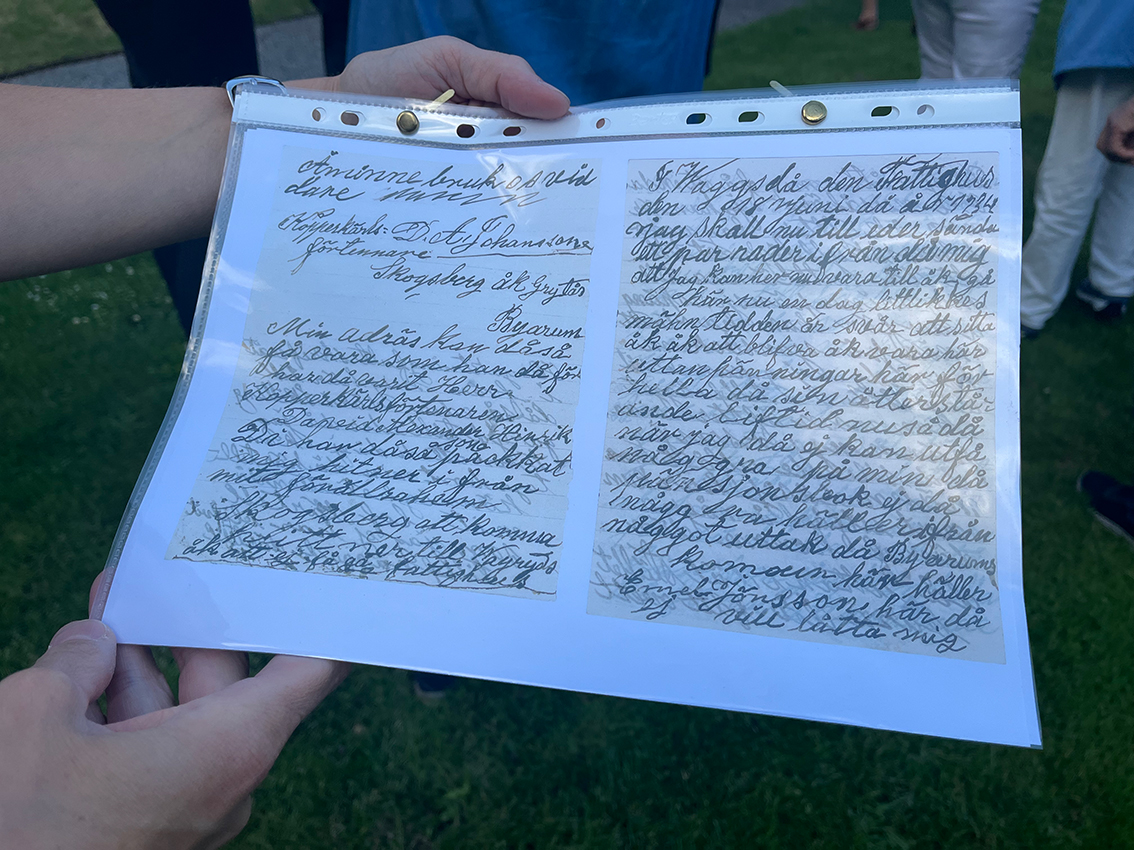 Åminne bruk os vid
dare
Kopperkärls- D. A. Johanssone
förtennare
Skogsberg åk Grytås
Byarum
Min adräs kan då så
få vara som han då för
har då varit Herr
Kopperkärlsförtenaren
David Alexander Hinrik
Du han då så påckkat som
mig hitner ifrån
mitt förällrahem
Skogsberg att komma
hitt ner till Vagryds
åk att ej få gå fattighus
I Waggsda den Fattighus
den 18 Juni då år 1934
jag skall nu till eder sända
ett par rader ifrån då mig
att jag kan her nu vara till åk gå
här nu en dag ettlikkes
mähn tidden är svår att sitta
åk åk att blifva åk vara här
uttan pänningar här för
hella då sin återstår
ande liftid nu så då
när jag då ej kan utfå
någ gra på min då
pänsjon steok ej då
någg gra hällder ifrån
någgot uttak då Byarums
komoun här håller
Emel Jönsson här då
ej vill låtta mig